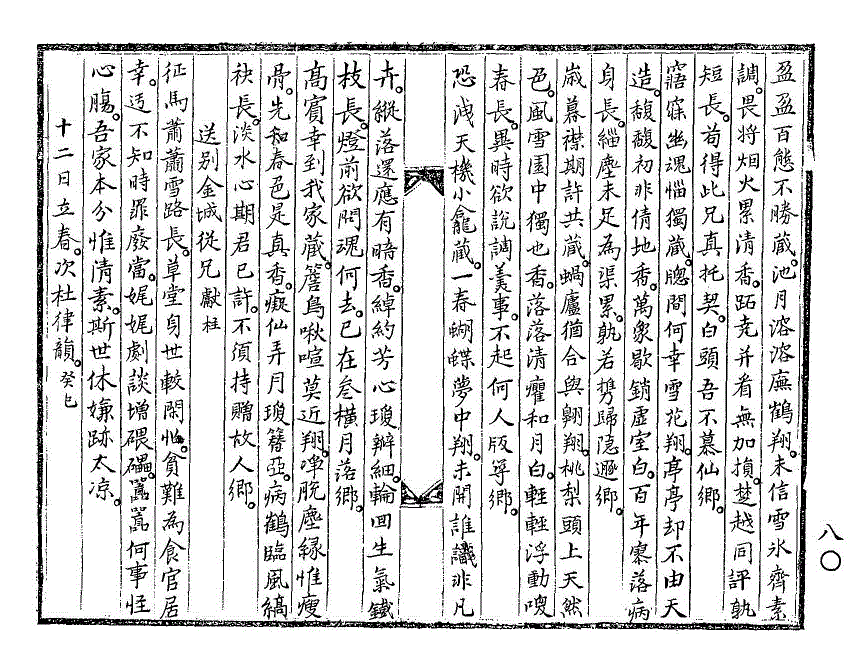 盈盈百態不勝蔵池月溶溶廡鶴翔未信雪氷齊素
調畏将烟火累清香跖堯并看無加損楚越同評孰
短長苟得此兄真托契白頭吾不慕仙鄕
寤寐幽魂惱獨蔵牕間何幸雪花翔亭亭却不由天
造馥馥初非倩地香萬象歇銷虛室白百年寥落病
身長緇塵未足為渠累孰若携歸隐遯鄕
歳暮襟期許共蔵蝸廬猶合與翺翔桃梨頭上天然
色風雪園中獨也香落落清癯和月白輕輕浮動嗅
春長異時欲說調羹事不起何人版築鄕
恐洩天機小龕蔵一春蝴蝶夢中翔未開誰識非凡
卉縱落還應有暗香綽約芳心瓊瓣細輪囬生氣鐵
枝長燈前欲問魂何去已在參横月落鄕
高賓幸到我家蔵簷鳥啾喧莫近翔嘽脫塵縁惟瘦
骨先和春色是真香癡仙弄月瓊簪亞病鶴臨風縞
袂長淡水心期君已許不須持贈故人鄕
送别金城從兄獻柱
征馬蕭蕭雪路長草堂身世較閑忙貧難為食官居
幸迃不知時罪廢當娓娓劇談増磈礧嚣嚣何事恠
心膓吾家本分惟清素斯世休嫌跡太凉
十二日立春次杜律韻癸巳
八〇